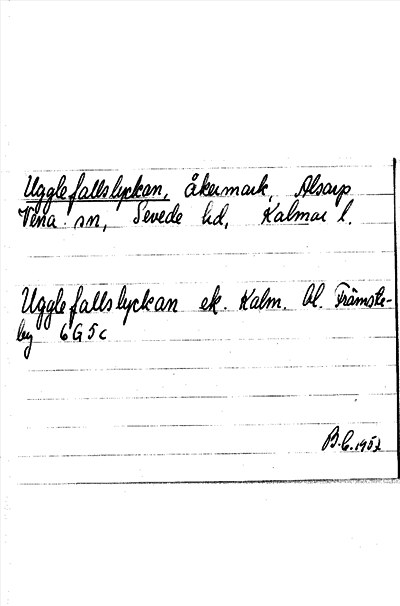 Ugglefallslyckan, åkermark, Alsarp
Vena sn, Sevede hd, Kalmar l.
Ugglefallslyckan ek. Kalm. bl. Främste-
by 6G5c
B.C. 1957